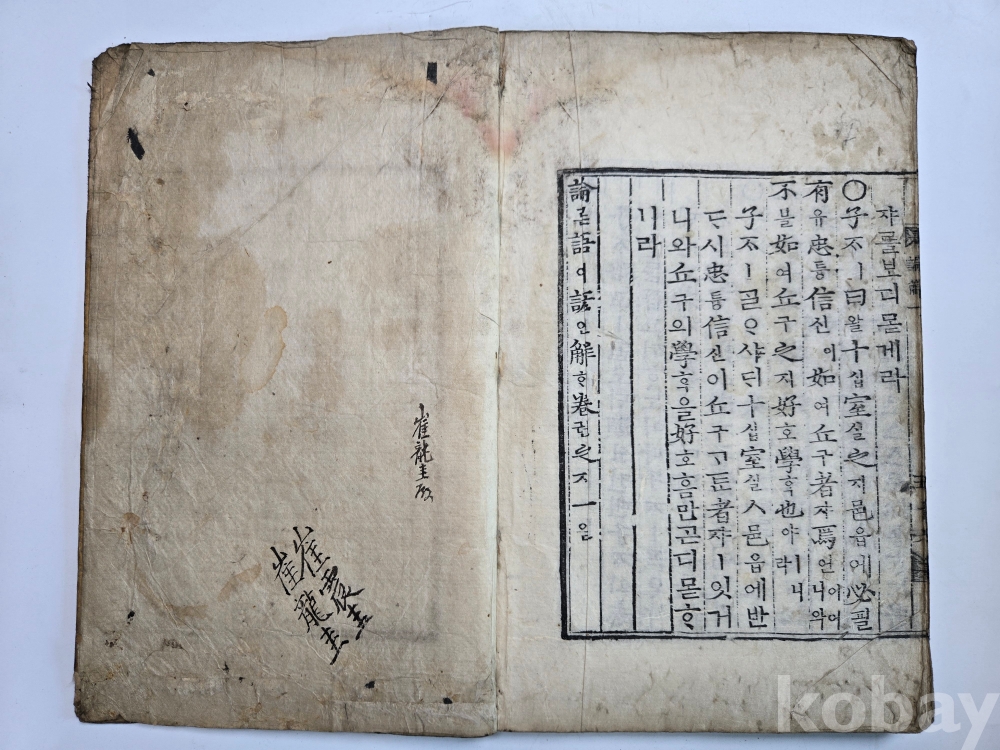 쟈ᄅᆞᆯ보디몯게라
○子ᄌᆞㅣ曰왈十십室실之지邑읍에必필
有유忠튱信신이如여丘구者쟈焉언이어니와
不블如여丘구之지好호學ᄒᆞᆨ也야ㅣ니라
子ᄌᆞㅣᄀᆞᆯᄋᆞ샤ᄃᆡ十십室실ㅅ邑읍에반
ᄃᆞ시忠튱信신이丘구ᄀᆞᄐᆞᆫ者쟈ㅣ잇거
니와丘구의學ᄒᆞᆨ을好호홈만ᄀᆞᆮ디몯ᄒᆞ
니라
論론語어諺언解ᄒᆡ卷권之지一일
崔龍圭
崔震圭
崔龍圭
kobay